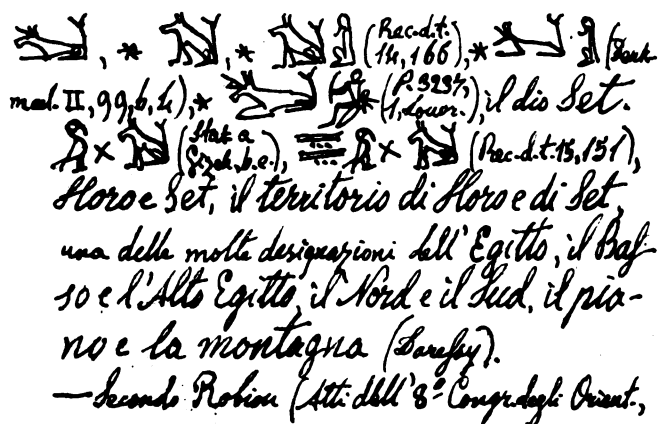 , * , * (Rec. d. t. 14, 166), * (Denk-
mal. II, 99, b, 4), * (P. 3237, 1, Louvr.), il dio Set.
× (Stat. a Gizeh, b. e.), × (Rec. d. t. 15, 151),
Horo e Set, il territorio di Horo e di Set,
una delle molte designazioni dell'Egitto, il Bas-
so e l'Alto Egitto, il Nord e il Sud, il pia-
no e la montagna (Daressy).
— Secondo Robiou (Atti dell'8° Congr. degli Orient.,